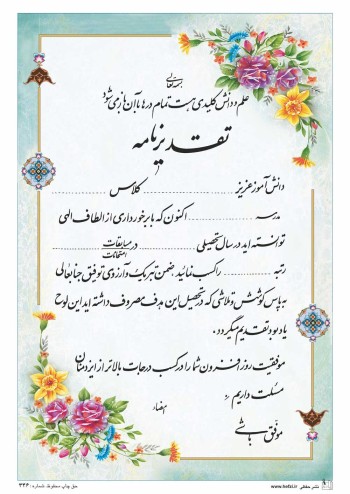 بسمه تعالی
علم و دانش کلیدی هست تمام درها با آن باز می شود
تقدیرنامه
دانش آموز عزیز .................... کلاس ....................
مدرسه .................... اکنون که با برخورداری از الطاف الهی
توانسته اید در سال تحصیلی .................... در مسابقات
امتحانات
رتبه ............ را کسب نمائید، ضمن تبریک و آرزوی توفیق جنابعالی
به پاس کوشش و تلاشی که در تحصیل این هدف مصروف داشته اید این لوح
یادبود تقدیم میگردد.
موفقیت روزافزون شما را در کسب درجات بالاتر از ایزد منان
مسئلت داریم
امضاء
موفق باشی
حق چاپ محفوظ شماره: ۳۴۶
www.hefzi.ir نشر حفظی